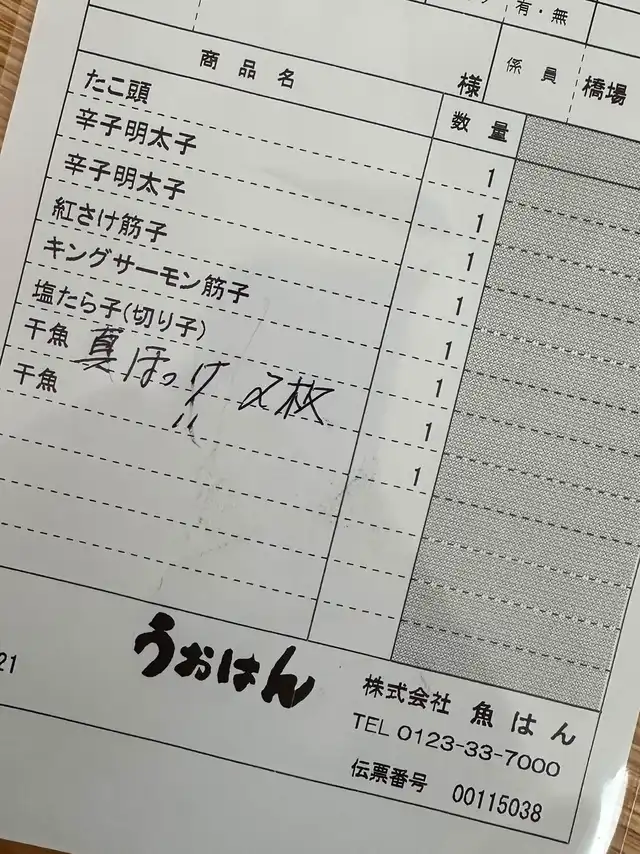 有・無
商品名 様 係員 橋場
数量
たこ頭 1
辛子明太子 1
辛子明太子 1
紅さけ筋子 1
キングサーモン筋子 1
塩たら子(切り子) 1
干魚 真ほっけ 2枚 1
干魚 〃 1
うおはん
21
株式会社 魚はん
TEL 0123-33-7000
伝票番号 00115038